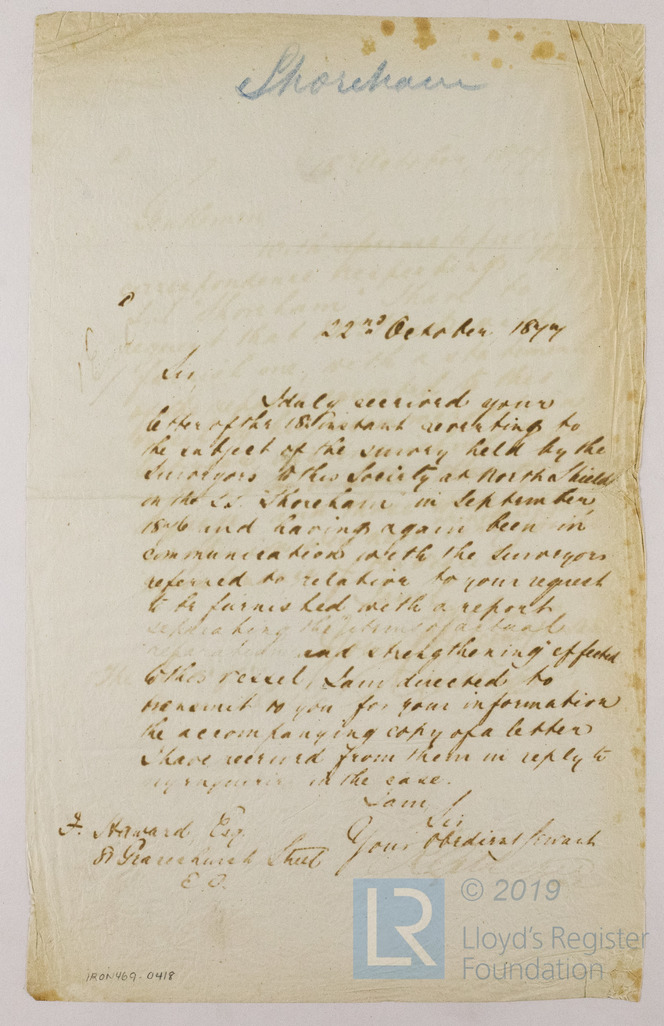 Shoreham
22nd October 1877
Sir
I duly received your
letter of the 18th instant reverting to
the subject of the survey held by the
Surveyors to this Society at North Shields
on the S.S. "Shoreham" in September
1876 and having again been in
communication with the Surveyors
referred to relative to your request
to be furnished with a report
separating the items of actual
"reparation and strengthening" effected
to this vessel, I am directed to
transmit to you for your information
the accompanying copy of a letter
I have received from them in reply to
my inquiries in the case.
I am
Sir
Your Obedient Servant
F. Haward Esq.
Gracechurch Street
E.C.
IRON469-0418
LR
© 2019
Lloyd's Register
Foundation